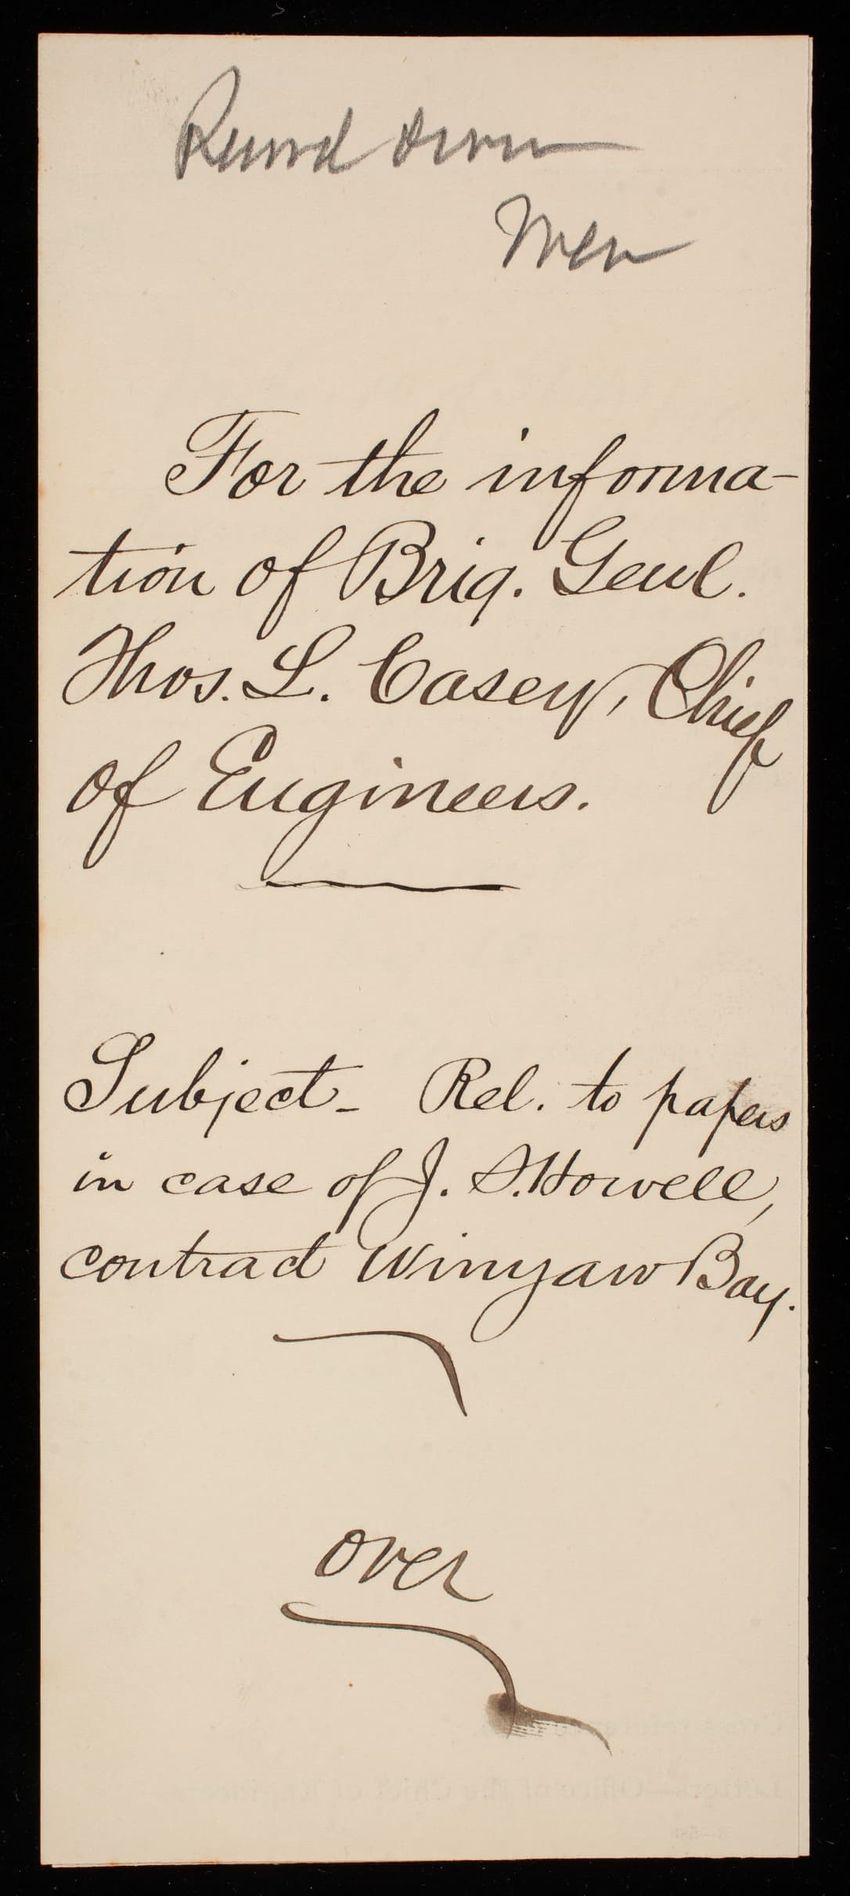 For the informa-
tion of Brig. Genl.
Thos. L. Casey, Chief
of Engineers.
Subject - Rel. to papers
in case of J. S. Howell,
contract Winyaw Bay.
over